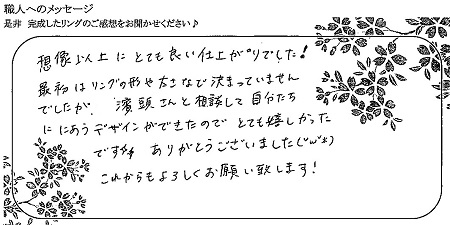 職人へのメッセージ
是非 完成したリングのご感想をお聞かせください♪
想像以上にとても良い仕上がりでした!
最初はリングの形や太さなど決まっていません
でしたが、濱頭さんと相談して自分たち
ににあうデザインができたのでとても嬉しかった
です!! ありがとうございました(^ω^*)
これからもよろしくお願い致します!